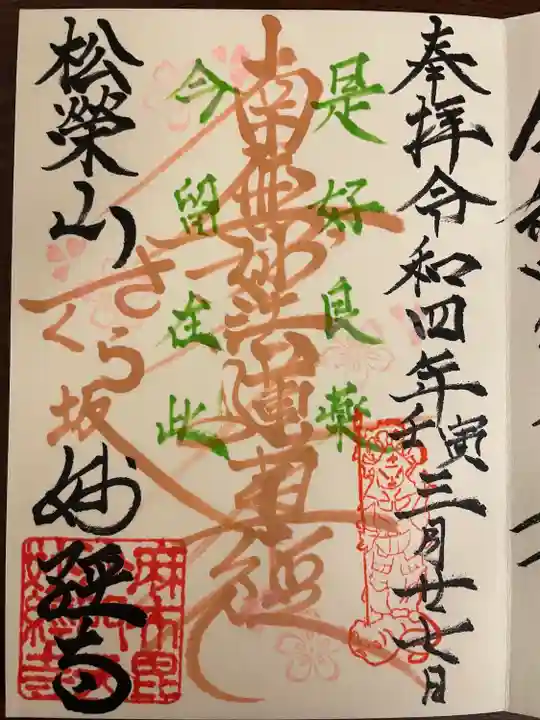 奉拝令和四年壬寅三月廿七日
是好良薬
南無妙法蓮華経
今留在此
ざくら坂
松榮山
妙経寺